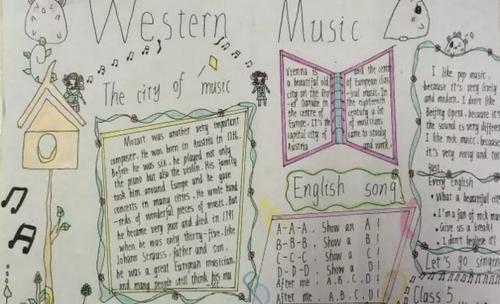 Western Music
The city of music
Mozart was another very important
composer. He was born in Austria in
Before he was six, he played not only
the piano but also the violin. His family
took him around Europe and he gave
concerts in many cities. He wrote hund
-reds of wonderful pieces of music. But
he became very poor and died in 1791
when he was only thirty-five. Like
Johann Strauss, father and son,
he was a great European musician
and many people still think his mu
Vienna is
a beautiful old
city on the Riv
-er Danube in
the centre of
Europe. It's the
capital city of
Austria
and the centre
of European clas
-ical music. In
the eighteenth
century a lot
of musicians
came to study
and work
I like pop music,
because it's very lively
and modern. I don't like
Beijing Opera, because it's
the sound is very different
I like rock music, because
it's very noisy and
English song
A-A-A. Show an A!
B-B-B. Show a B!
C-C-C. Show a C!
D-D-D. Show a D!
After me, A, B, C, D!
After me, A, B, C, D
Every English
What a beautiful city
I'm a fan of rock
Give us a break!
I don't believe it
Let's go singing
Class 5